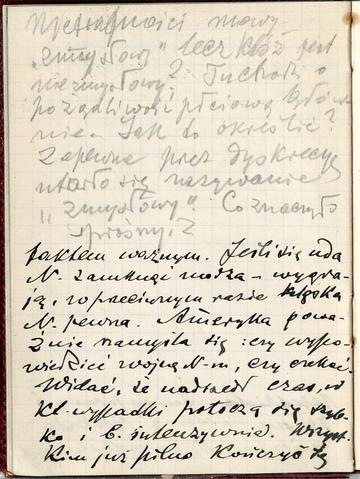 Nietrafności mowy –
„zmysłowy” lecz któż jest
niezmysłowy? Tu chodzi o
pożądliwość płciową głów-
nie. Jak to określić?
Zapewne przez dyskrecję
utarło się nazywanie
„zmysłowy”. Co znaczyło
sprośny.?
faktem ważnym. Jeśli się uda
N. zamknąć morza – wygra-
ją, w przeciwnym razie klęska
N. pewna. Ameryka powa-
żnie namyśla się: czy wypo-
wiedzieć wojnę N-m, czy czekać.
Widać, że nadszedł czas, w
kt. wypadki potoczą się szyb-
ko i b. intenzywnie. Wszyst-
kim już pilno kończyć tę